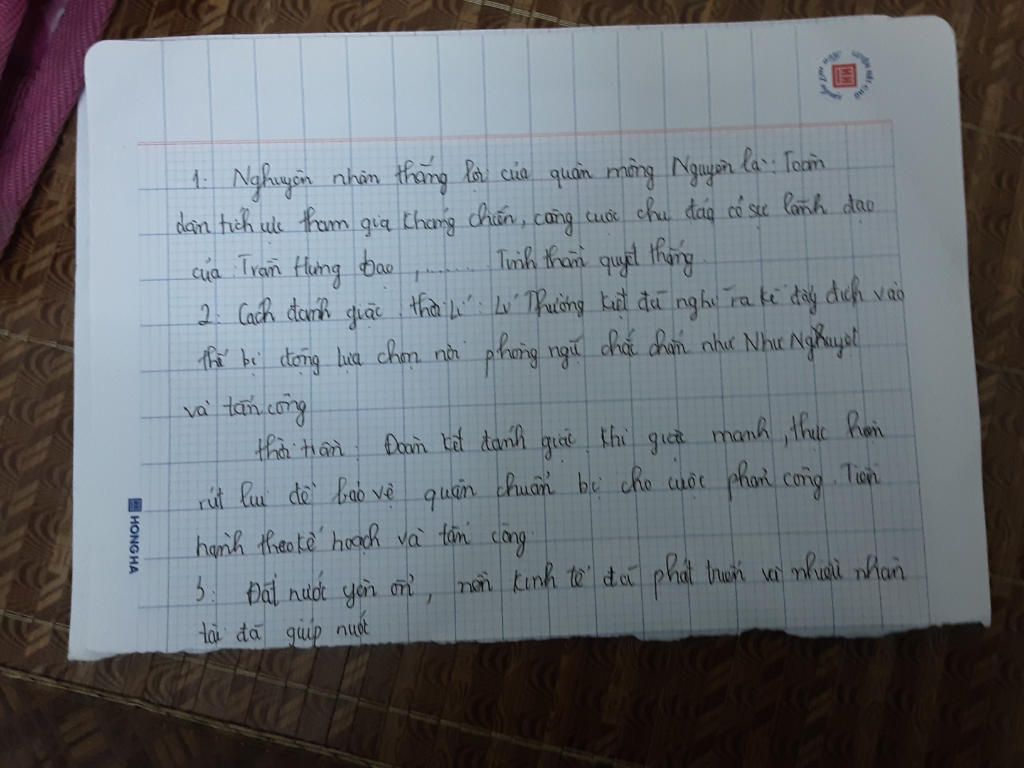 1: Nghuyên nhân thắng lợi của quân mông Nguyên là: Toàn
dân tích cực tham gia kháng chiến, công cuộc chu đáo có sự lãnh đạo
của Trần Hưng Đạo, ...... Tinh thần quyết thắng
2: Cách đánh giặc thời Lý: Lý Thường Kiệt đã nghĩ ra kế đẩy địch vào
thế bị động lựa chọn nơi phòng ngự chắc chắn như Như Nghuyệt
và tấn công
thời trần: Đoàn kết đánh giặc khi giặc mạnh, thực hiện
rút lui để bảo vệ quân chuẩn bị cho cuộc phản công. Tiến
hành theo kế hoạch và tấn công
3: Đất nước yên ổn, nền kinh tế đã phát triển và nhiều nhân
tài đã giúp nước
HONG HA